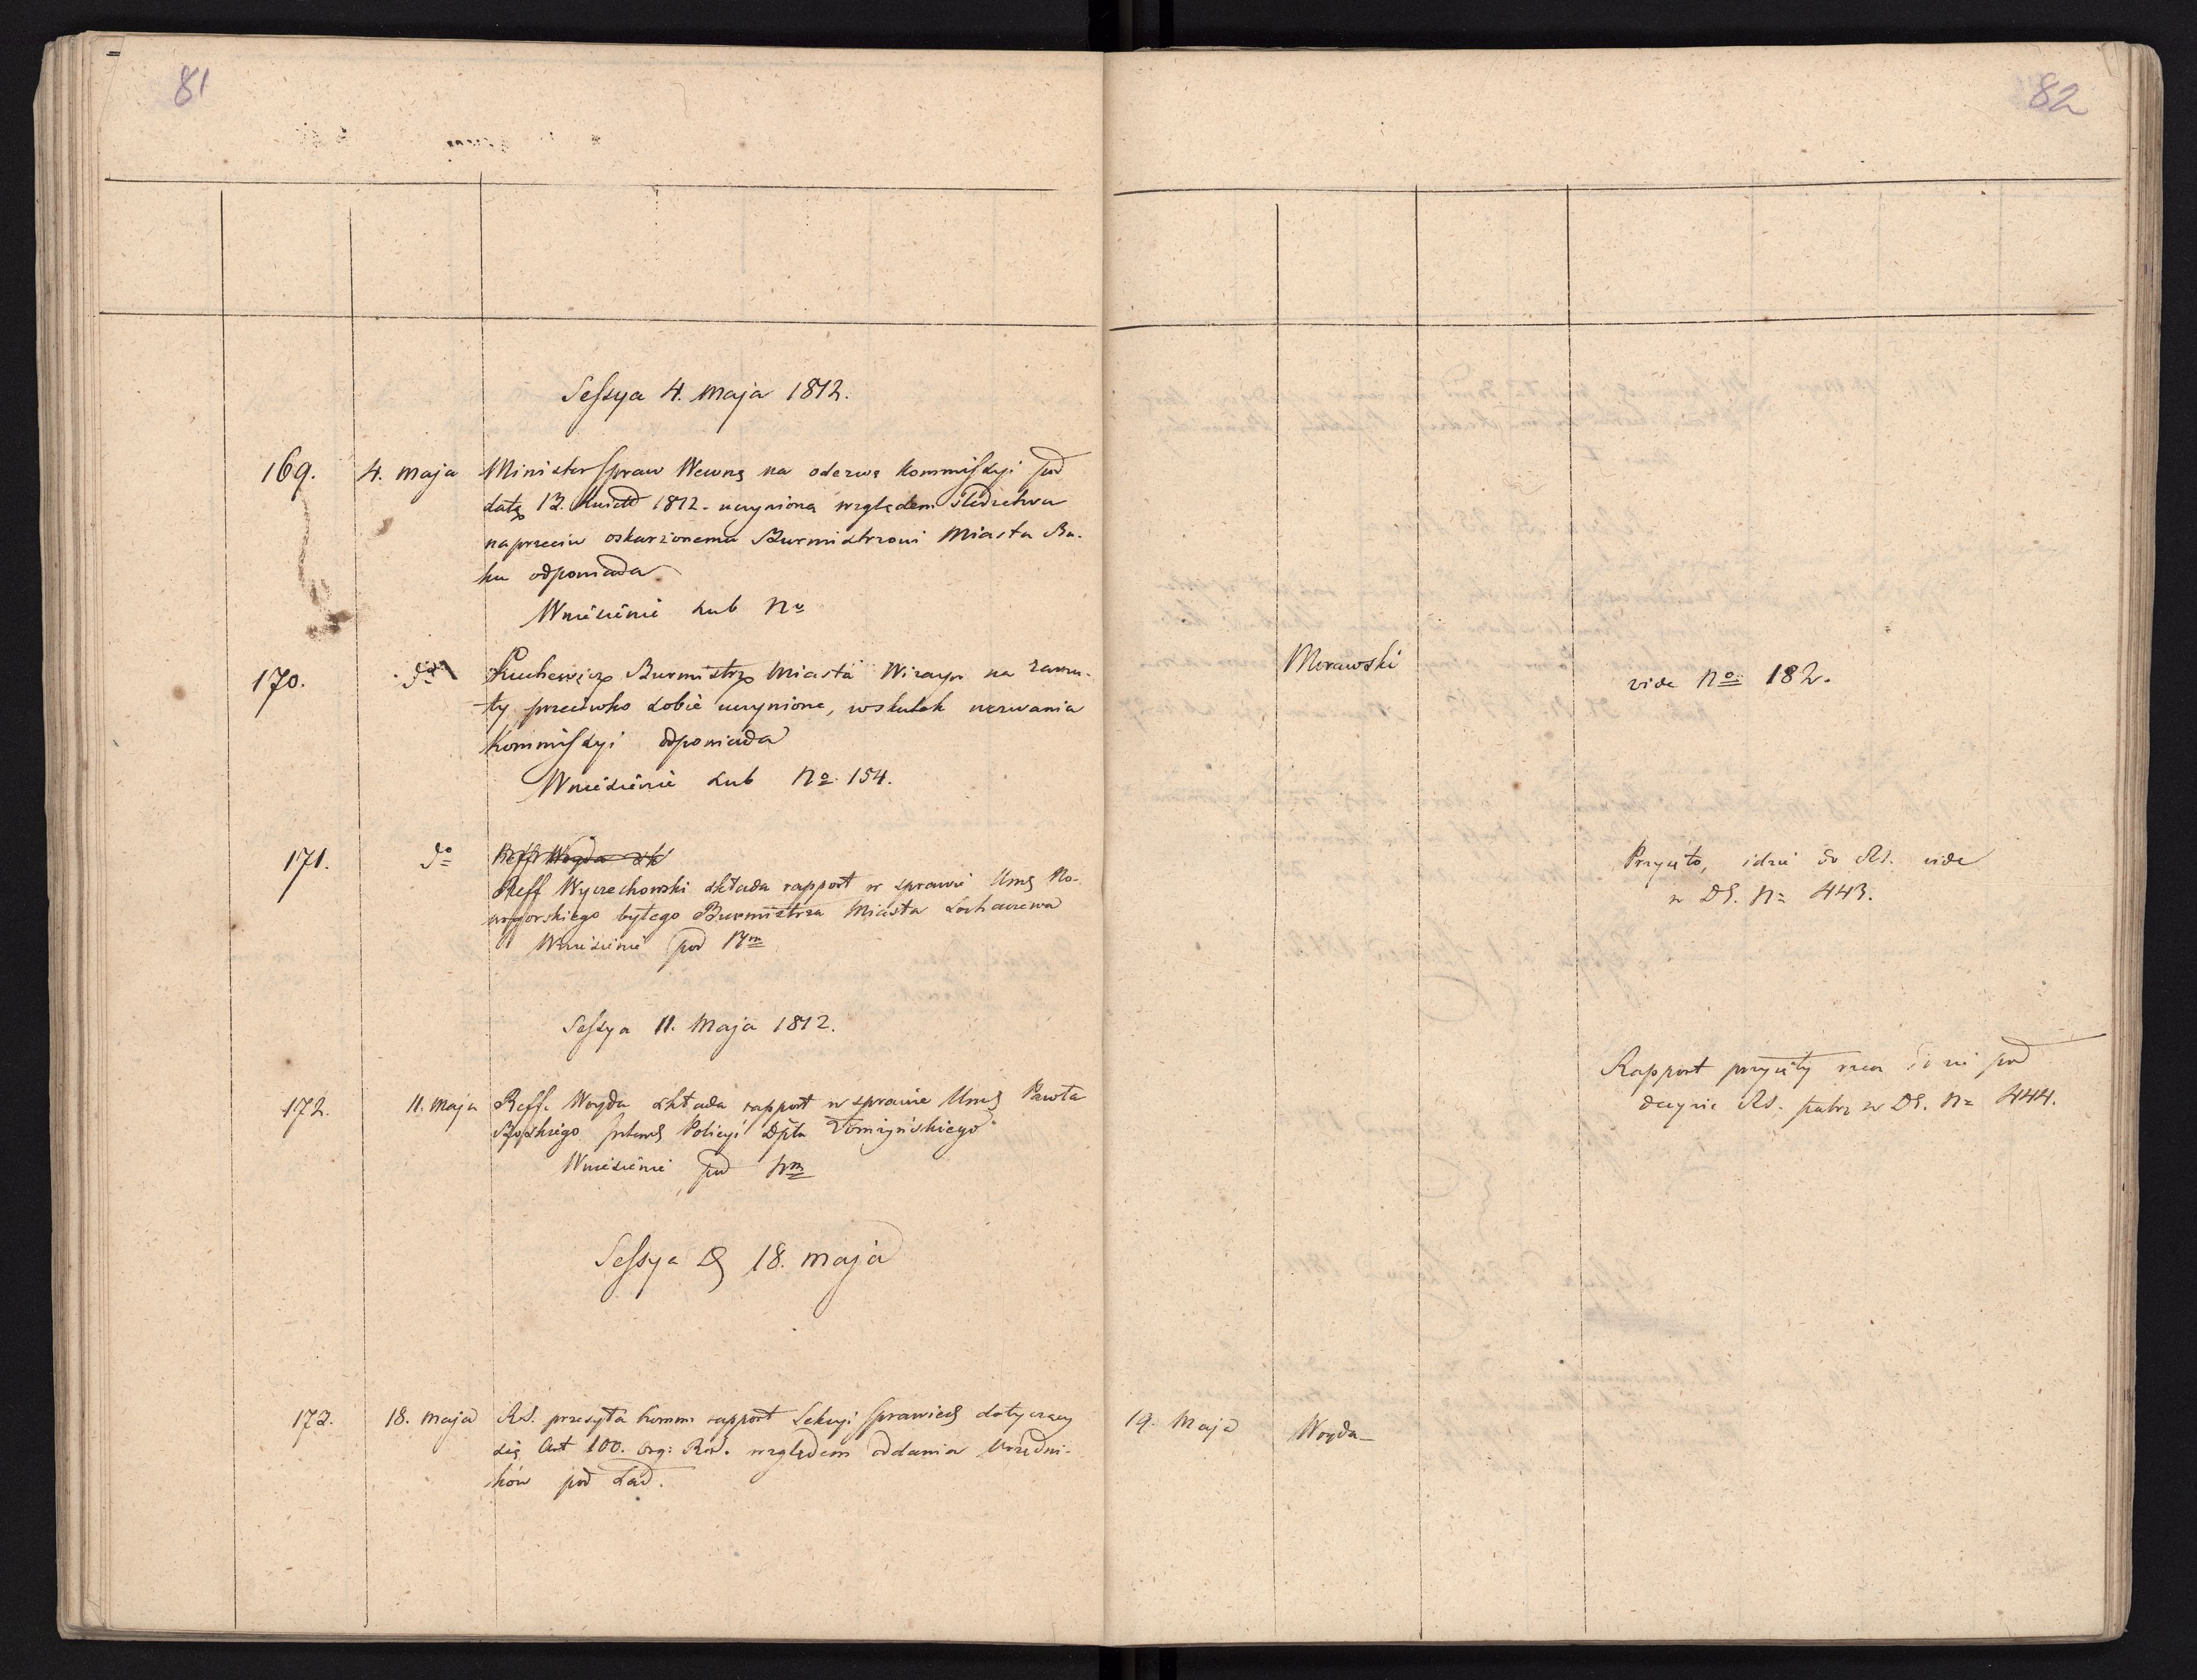 81
82
Sessya 4. Maja 1812.
169. 4. Maja Minister Spraw Wewnę na odezwę Kommissyi pod
datą 13. Kwietn 1812. uczynioną względem śledztwa
naprzeciw oskarżonemu Burmistrzowi Miasta Bu-
ku odpowiada
Wniesienie sub No
170. do Burmistrz Miasta Wizayn na zarzu-
ty przeciwko sobie uczynione, wskutek wezwania
Kommissyi odpowiada
Wniesienie sub No 154.
Morawski
vide No 182.
171. do Reff Woyda sk
Reff Wyczechowski składa rapport w sprawie Urog No-
wogorskiego byłego Burmistrza Miasta Sochaczewa
Wniesienie pod Nm
Przyięto, idzie do RS. vide
w DS. No 443.
Sessya 11. Maja 1812.
172. 11. Maja Reff. Woyda składa rapport w sprawie Urog Pawła
Policyi Dpta Łomżyńskiego
Wniesienie pod Nm
Rapport przyięty idzie pod
decyzie RS. patrz w DS. No 444.
Sessya D 18. Maja
173. 18. Maja RS. przesyła Komm: rapport Sekcyi Sprawied dotyczący
się Art 100. Org: Rad. względem oddania Urzędni-
ków pod Sąd.
19. Maja Woyda